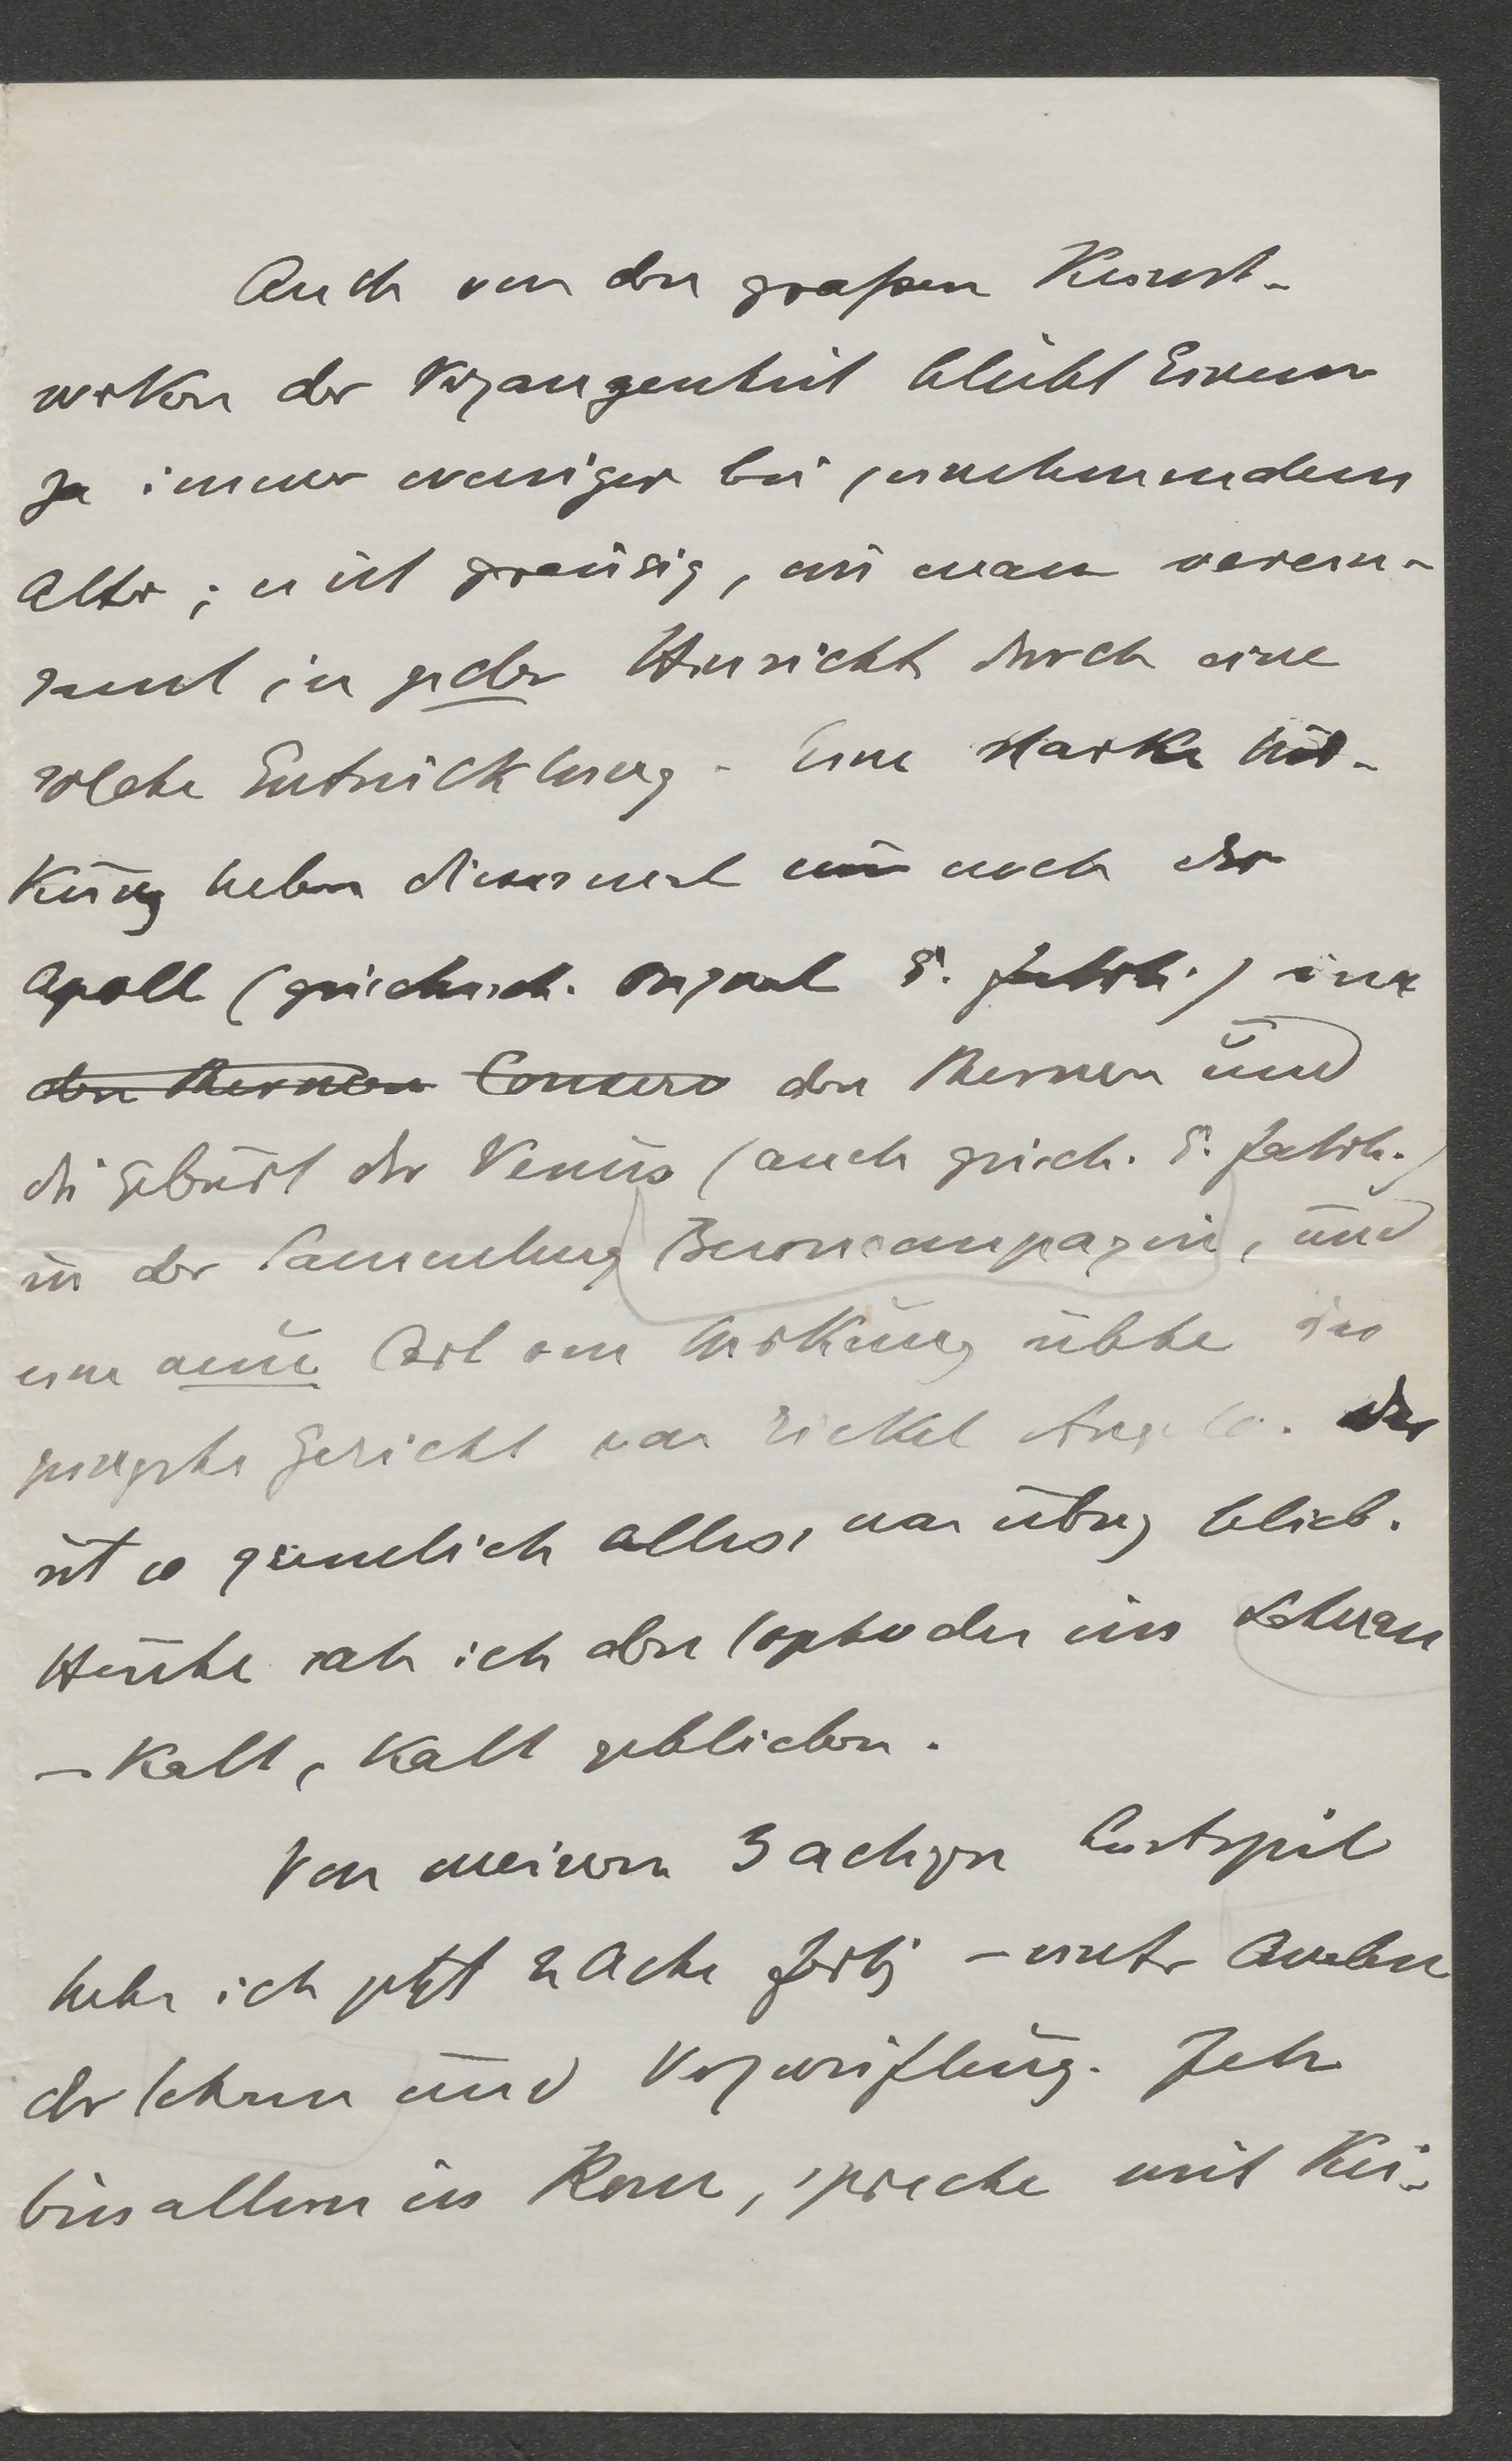 Auch von den großen Kunst-
werken der Vergangenheit bleibt Einem
ja immer weniger bei zunehmendem
Alter; es ist grausig, wie man verein-
samt in jeder Hinsicht durch eine
solche Entwicklung. Eine starke Wir-
kung haben diesesmal nur noch der
Apoll (griechisch. Original 5. Jahrh.) in
den Thermen Conserv den Thermen und
die Geburt der Venus (auch griech. 5. Jahrh.)
in der Sammlung Buoncompagni, und
eine neue Art von Wirkung übte das
jüngste Gericht von Michel Angelo. Das
ist so ziemlich alles, was übrig blieb.
Heute sah ich den Sophocles im Lateran
– kalt, kalt geblieben.
Von meinem 3 actigen Lustspiel
habe ich jetzt 2 Acte fertig – unter Qualen
der Scham und Verzweiflung. Ich
bin allein in Rom, spreche mit Kei-